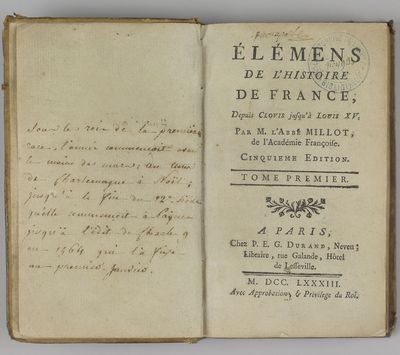 Sous les rois de la première
race, l'année commençoit avec
le mois de mars; au tems
de Charlemagne à Noël;
jusqu'à la fin du 12e siècle
qu'elle commençoit à Pâques
jusqu'à l'édit de Charle 9
en 1564 qui l'a fixé
au premier Janvier.
ÉLÉMENS
DE L'HISTOIRE
DE FRANCE,
Depuis CLOVIS jusqu'à LOUIS XV,
PAR M. L'ABBÉ MILLOT,
de l'Académie Françoise.
CINQUIEME EDITION.
TOME PREMIER.
A PARIS,
Chez P. E. G. DURAND, Neveu;
Libraire, rue Galande, Hôtel
de Lesseville.
M. DCC. LXXXIII.
Avec Approbation, & Privilege du Roi.